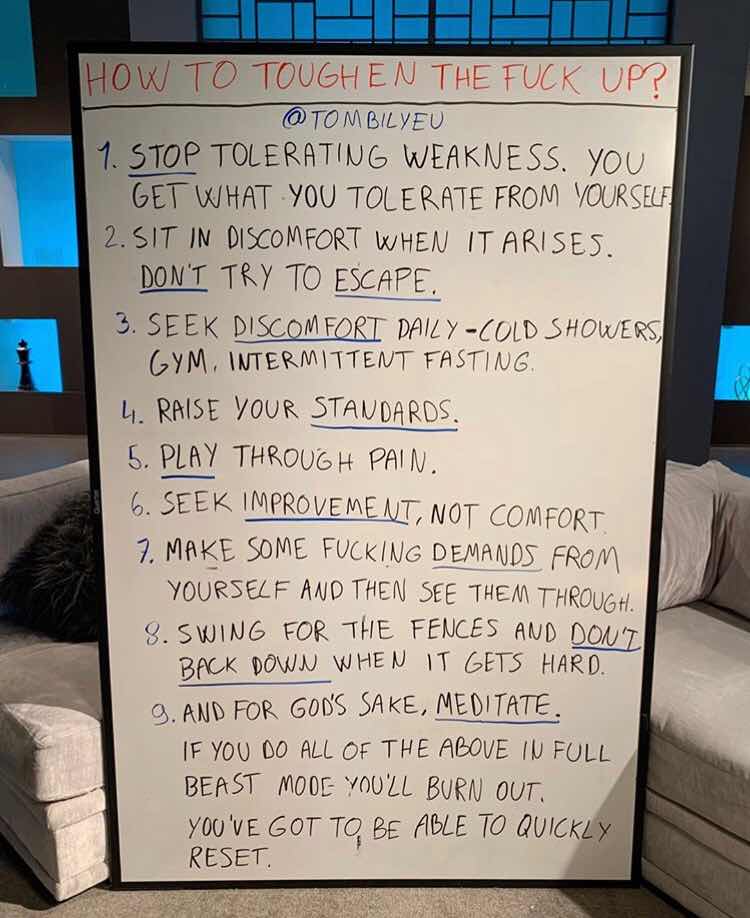 HOW TO TOUGHEN THE FUCK UP?
@TOMBILYEU
1. STOP TOLERATING WEAKNESS. YOU
GET WHAT YOU TOLERATE FROM YOURSELF.
2. SIT IN DISCOMFORT WHEN IT ARISES.
DON'T TRY TO ESCAPE.
3. SEEK DISCOMFORT DAILY - COLD SHOWERS,
GYM, INTERMITTENT FASTING.
4. RAISE YOUR STANDARDS.
5. PLAY THROUGH PAIN.
6. SEEK IMPROVEMENT, NOT COMFORT.
7. MAKE SOME FUCKING DEMANDS FROM
YOURSELF AND THEN SEE THEM THROUGH.
8. SWING FOR THE FENCES AND DON'T
BACK DOWN WHEN IT GETS HARD.
9. AND FOR GOD'S SAKE, MEDITATE.
IF YOU DO ALL OF THE ABOVE IN FULL
BEAST MODE YOU'LL BURN OUT.
YOU'VE GOT TO BE ABLE TO QUICKLY
RESET.